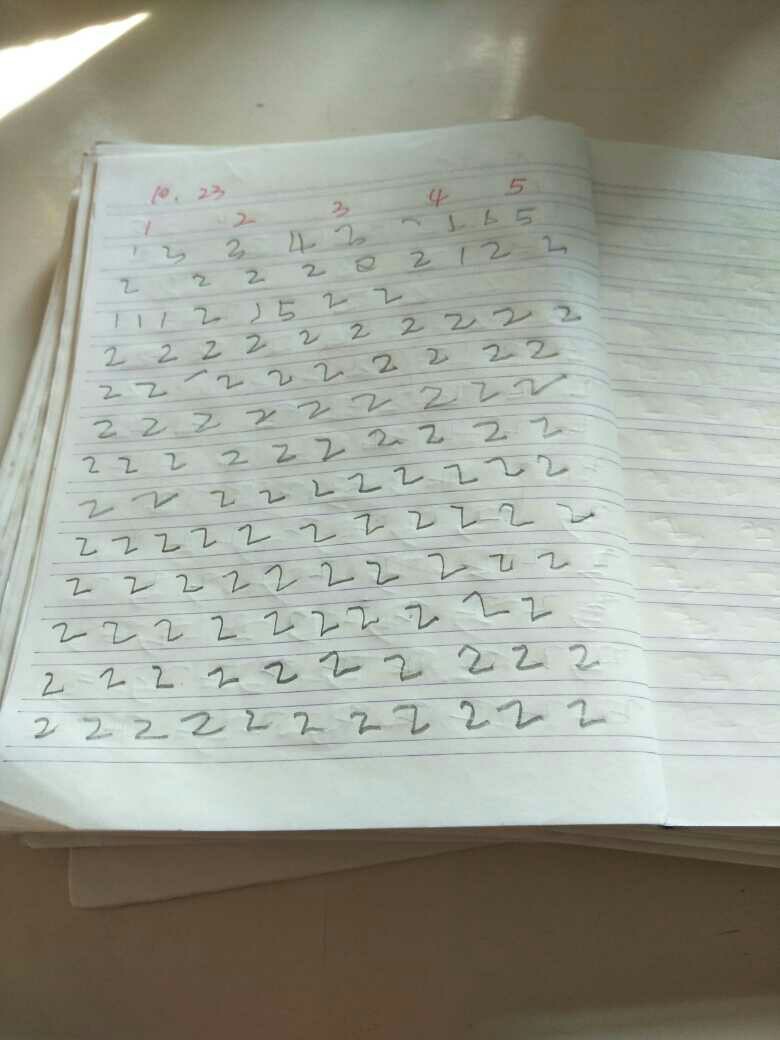 10. 23
1 2 3 4 5
1 3 3 4 3 1 1 5
2 2 2 2 0 2 1 2 2
1 1 1 2 1 5 2 2
2 2 2 2 2 2 2 2 2 2
2 2 2 2 2 2 2 2 2
2 2 2 2 2 2 2 2 2
2 2 2 2 2 2 2 2 2 2
2 2 2 2 2 2 2 2 2 2
2 2 2 2 2 2 2 2 2 2 2
2 2 2 2 2 2 2 2 2 2
2 2 2 2 2 2 2 2 2 2
2 2 2 2 2 2 2 2 2 2
2 2 2 2 2 2 2 2 2 2 2